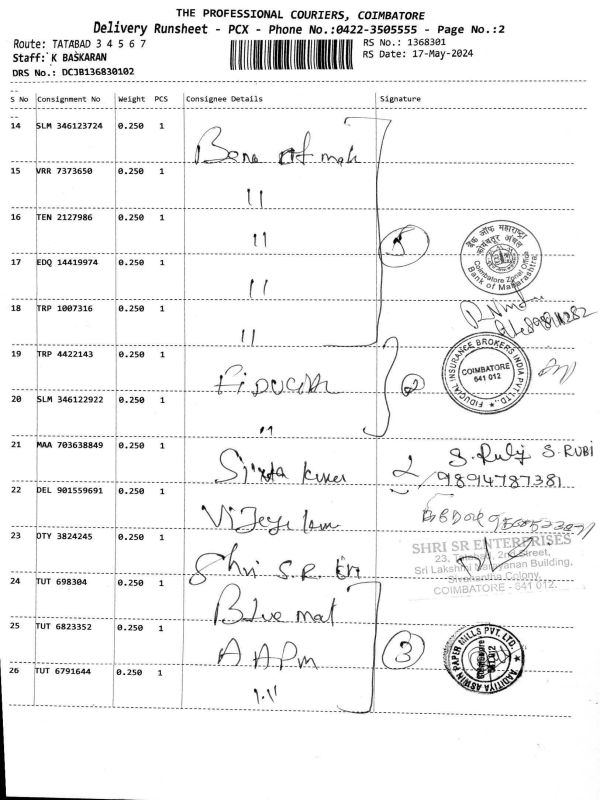 THE PROFESSIONAL COURIERS, COIMBATORE
Delivery Runsheet - PCX - Phone No.:0422-3505555 - Page No.:2
Route: TATABAD 3 4 5 6 7
RS No.: 1368301
Staff: K BASKARAN
RS Date: 17-May-2024
DRS No.: DCJB136830102
S No Consignment No Weight PCS Consignee Details Signature
14 SLM 346123724 0.250 1
15 VRR 7373650 0.250 1
"
16 TEN 2127986 0.250 1
"
5
बैंक ऑफ महाराष्ट्र
Coimbatore Zonal Office
Bank of Maharashtra
17 EDQ 14419974 0.250 1
"
18 TRP 1007316 0.250 1
"
19 TRP 4422143 0.250 1
2
FIDUCIAL INSURANCE BROKERS INDIA PVT. LTD.,
COIMBATORE
641 012
20 SLM 346122922 0.250 1
"
21 MAA 703638849 0.250 1
S. RUBI
9894787381
22 DEL 901559691 0.250 1
23 OTY 3824245 0.250 1
Shri S.R. Ent
SHRI SR ENTERPRISES
23, 2nd Street,
Building,
Colony,
COIMBATORE - 641 012.
24 TUT 698304 0.250 1
Blue mat
25 TUT 6823352 0.250 1
AAPM
3
AADITIYA ASWIN PAPER MILLS PVT. LTD.
26 TUT 6791644 0.250 1
"